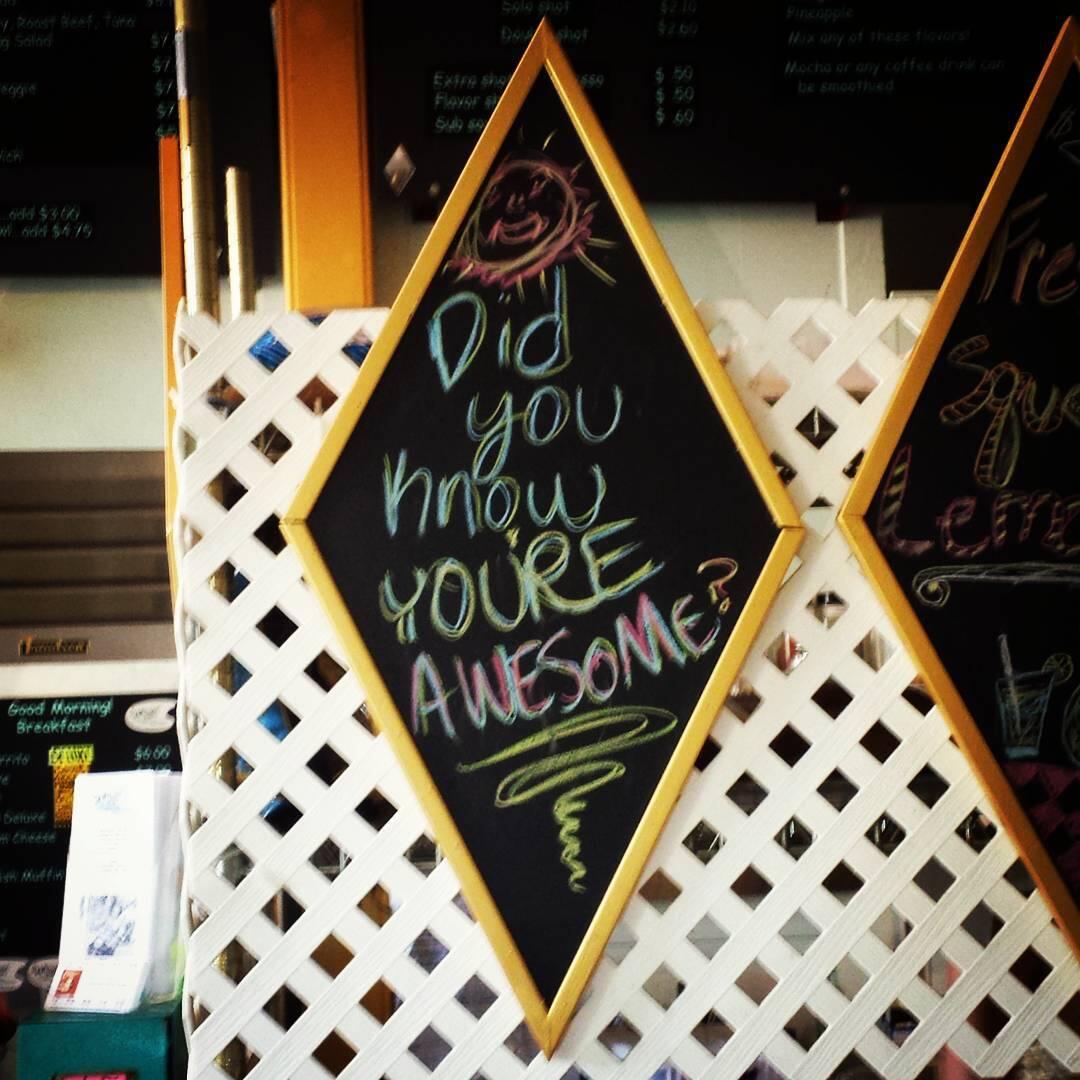 Roast Beef, Tuna
Salad
add $3.00
add $4.75
Solo shot $2.10
shot $2.60
Extra $ .50
Flavor $ .50
Sub $ .60
Pineapple
Mix any of these flavors!
Mocha or any coffee drink can
be smoothied
Did
you
know
YOU'RE
AWESOME?
Good Morning!
Breakfast
$6.00
Deluxe
Cheese
Muffin